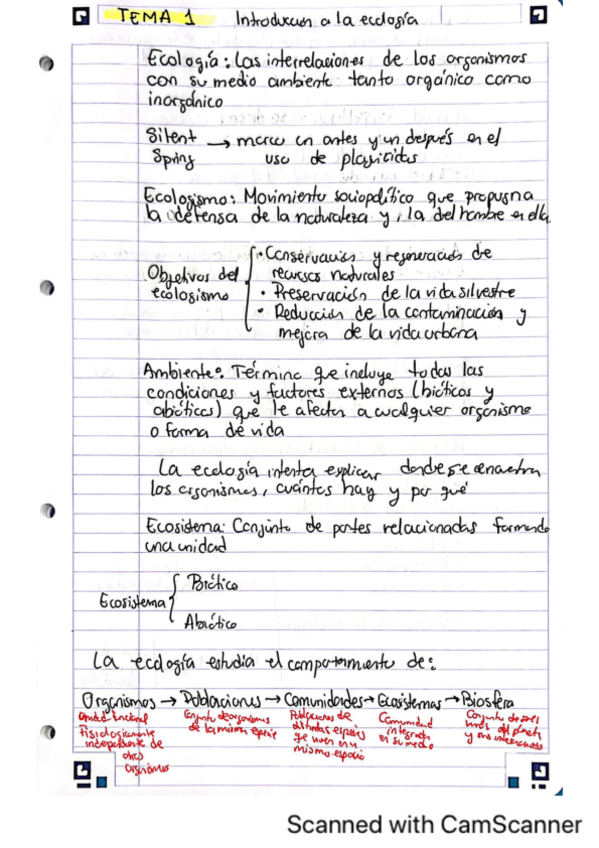 TEMA 1 Introducción a la ecología
Ecología: Las interrelaciones de los organismos
con su medio ambiente tanto orgánico como
inorgánico
Silent → marca un antes y un después en el
Spring uso de plaguicidas
Ecologismo: Movimiento sociopolítico que propugna
la defensa de la naturaleza y, la del hombre en ella
Objetivos del
ecologismo
• Conservación y regeneración de
recursos naturales
• Preservación de la vida silvestre
• Reducción de la contaminación y
mejora de la vida urbana
Ambiente: Término que incluye todas las
condiciones y factores externos (bióticos y
abióticos) que le afectan a cualquier organismo
o forma de vida
La ecología intenta explicar donde se encuentran
los organismos, cuántos hay y por qué
Ecosistema: Conjunto de partes relacionadas formando
una unidad
Ecosistema
Biótico
Abiótico
La ecología estudia el comportamiento de:
Organismos → Poblaciones → Comunidades → Ecosistemas → Biosfera
Unidad funcional
fisiologicamente
independiente de
otros
organismos
Conjunto de organismos
de la misma especie
Poblaciones de
distintas especies
que viven en un
mismo espacio
Comunidad
integrada
en su medio
Conjunto de seres
vivos del planeta
y sus interacciones
Scanned with CamScanner